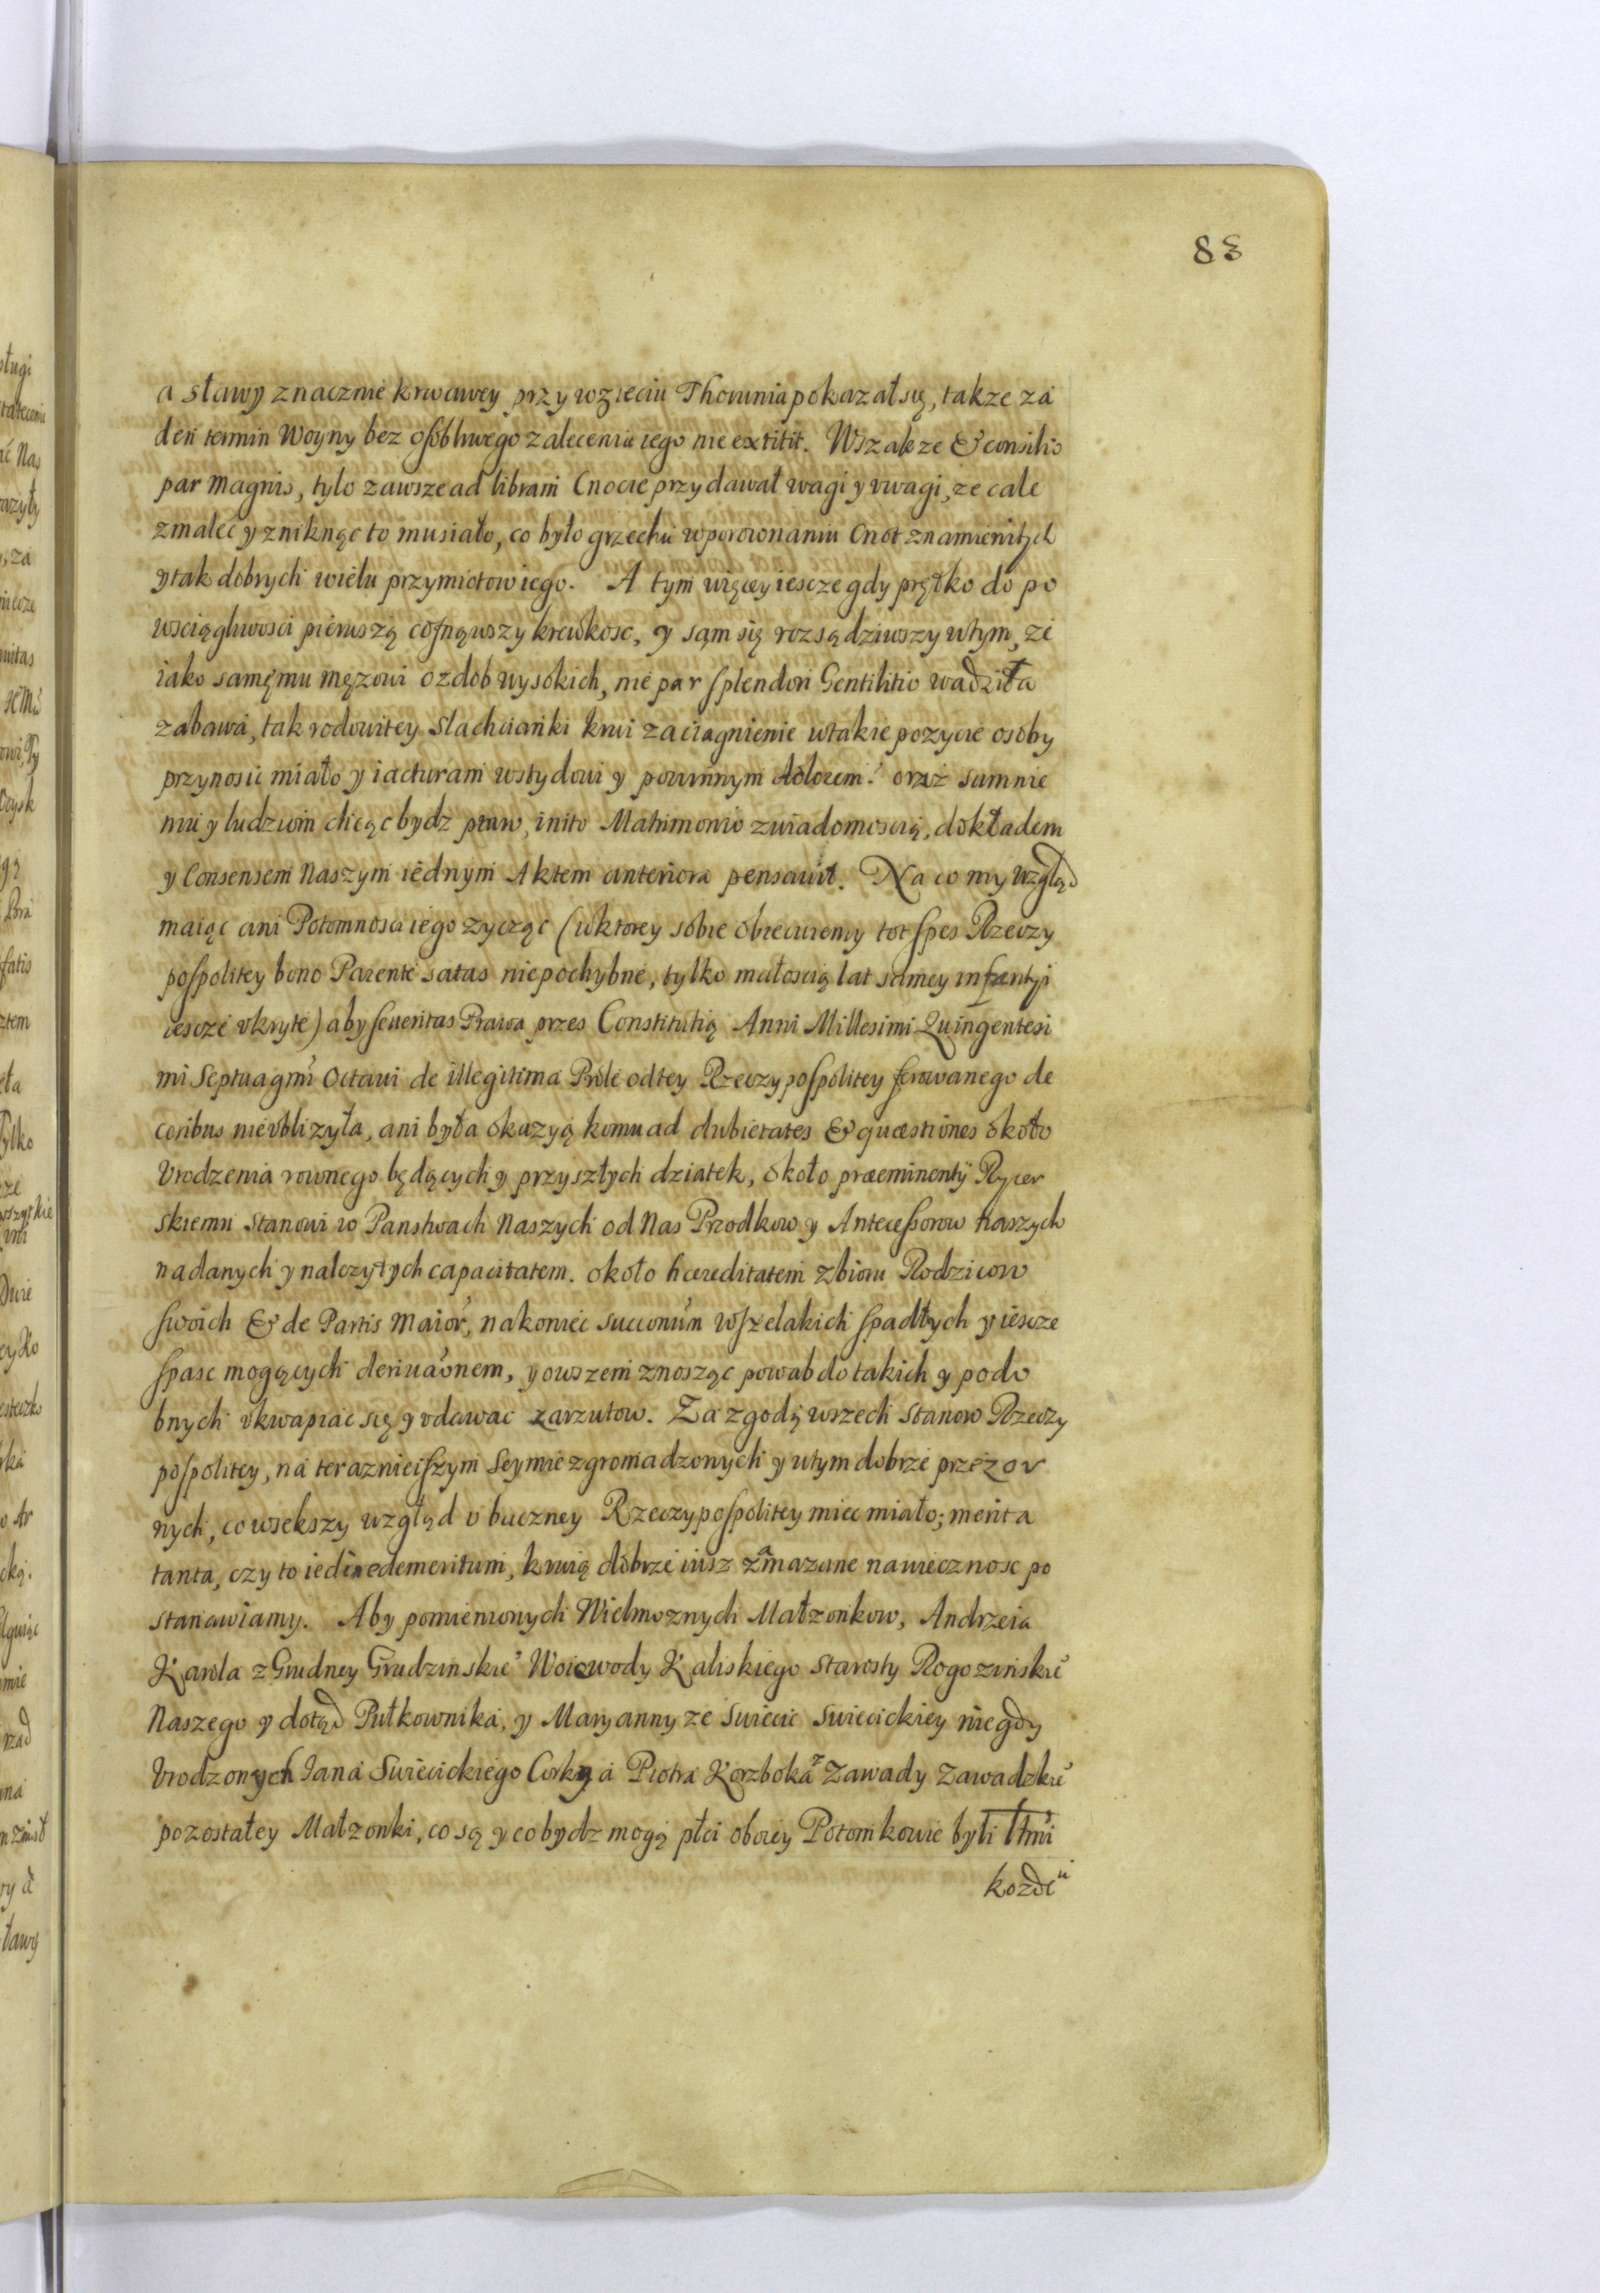 83
a sławy znacznie krwawey przy wzięciu Thorunia pokazał się, takze za
den termin Woyny bez osobliwego zalecenia iego nie extitit. Wszakze & consilio
par magnis, tylo zawsze ad libram Cnocie przydawał wagi y vwagi, ze cale
zmaleć y zniknąc to musiało, co było grzechu w porownaniu Cnot znamienitych
y tak dobrych wielu przymiotow iego. A tym więcey iescze gdy prętko do po
wsciągliwosci pierwszą cofnąwszy krewkosc, y sąm się rozsądziwszy w tym, ze
iako samęmu męzowi ozdob wysokich, nie par splendori Gentilitio wadziła
zabawa, tak rodowitey Slachcianki krwi zaciagnienie w takie pozycie osoby
przynosic miało y iacturam wstydowi y powinnym dolorem: oraz sumnie
niu y ludziom chcąc bydz praw, inito Matrimonio z wiadomoscią, dokładem
y Consensem Naszym iednym Aktem anteriora pensauit. Na co my wzgląd
maiąc ani Potomnosci iego zycząc (w ktorey sobie obiecuiemy tot spes Rzeczy
pospolitey bono Parente satas niepochybne, tylko małoscią lat samey infantyi
iescze vkryte) aby seueritas Prawa przes Constitutią Anni Millesimi Quingentesi
mi Septuagmi Octaui de illegitima Prole od tey Rzeczypospolitey ferowanego de
coribus nie vblizyła, ani była okazyą komu ad dubietates & quæstiones około
Vrodzenia rownego będących y przyszłych dziatek, około præeminentÿ Rycer
skiemu Stanowi w Panstwach Naszych od Nas Przodkow y Antecessorow Naszych
nadanych y nalezytych capacitatem. około hæreditatem zbioru Rodzicow
swoich & de Partis Maior, nakoniec succonum wszelakich spadłych y iescze
spasc mogących deriuaonem, y owszem znosząc powab do takich y podo
bnych vkwapiac się y vdawac zarzutow. Za zgodą wszech Stanow Rzeczy
pospolitey, na teraznieiszym Seymie zgromadzonych y w tym dobrze przezor
nych, co wiekszy wzgląd v buczney Rzeczypospolitey miec miało; merita
tanta, czy to iedno demeritum, krwią dobrze iusz zamazane na wiecznosc po
stanawiamy. Aby pomienionych Wielmoznych Małzonkow, Andrzeia
Karola z Grudney Grudzinskie Woiewody Kaliskiego Starosty Rogozinskie
Naszego y dotąd Pułkownika, y Maryanny ze Swiecic Swiecickiey niegdy
Vrodzonych Iana Swiecickiego Corky a Piotra Korzboka z Zawady Zawadzkie
pozostałey Małzonki, co są y co bydz mogą płci oboiey Potomkowie byli łtmi
kozde